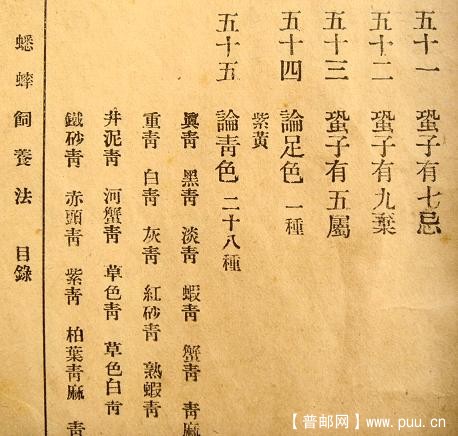 五十一　蛩子有七忌
五十二　蛩子有九棄
五十三　蛩子有五屬
五十四　論足色　一種
紫黃
五十五　論青色　二十八種
眞青　黑青　淡青　蝦青　蟹青　青麻
重青　白青　灰青　紅砂青　熟蝦青
井泥青　河蟹青　草色青　草色白青
鐵砂青　赤頭青　紫青　柏葉青麻　青
蟋蟀飼養法　目錄
【普邮网】www.puu.cn